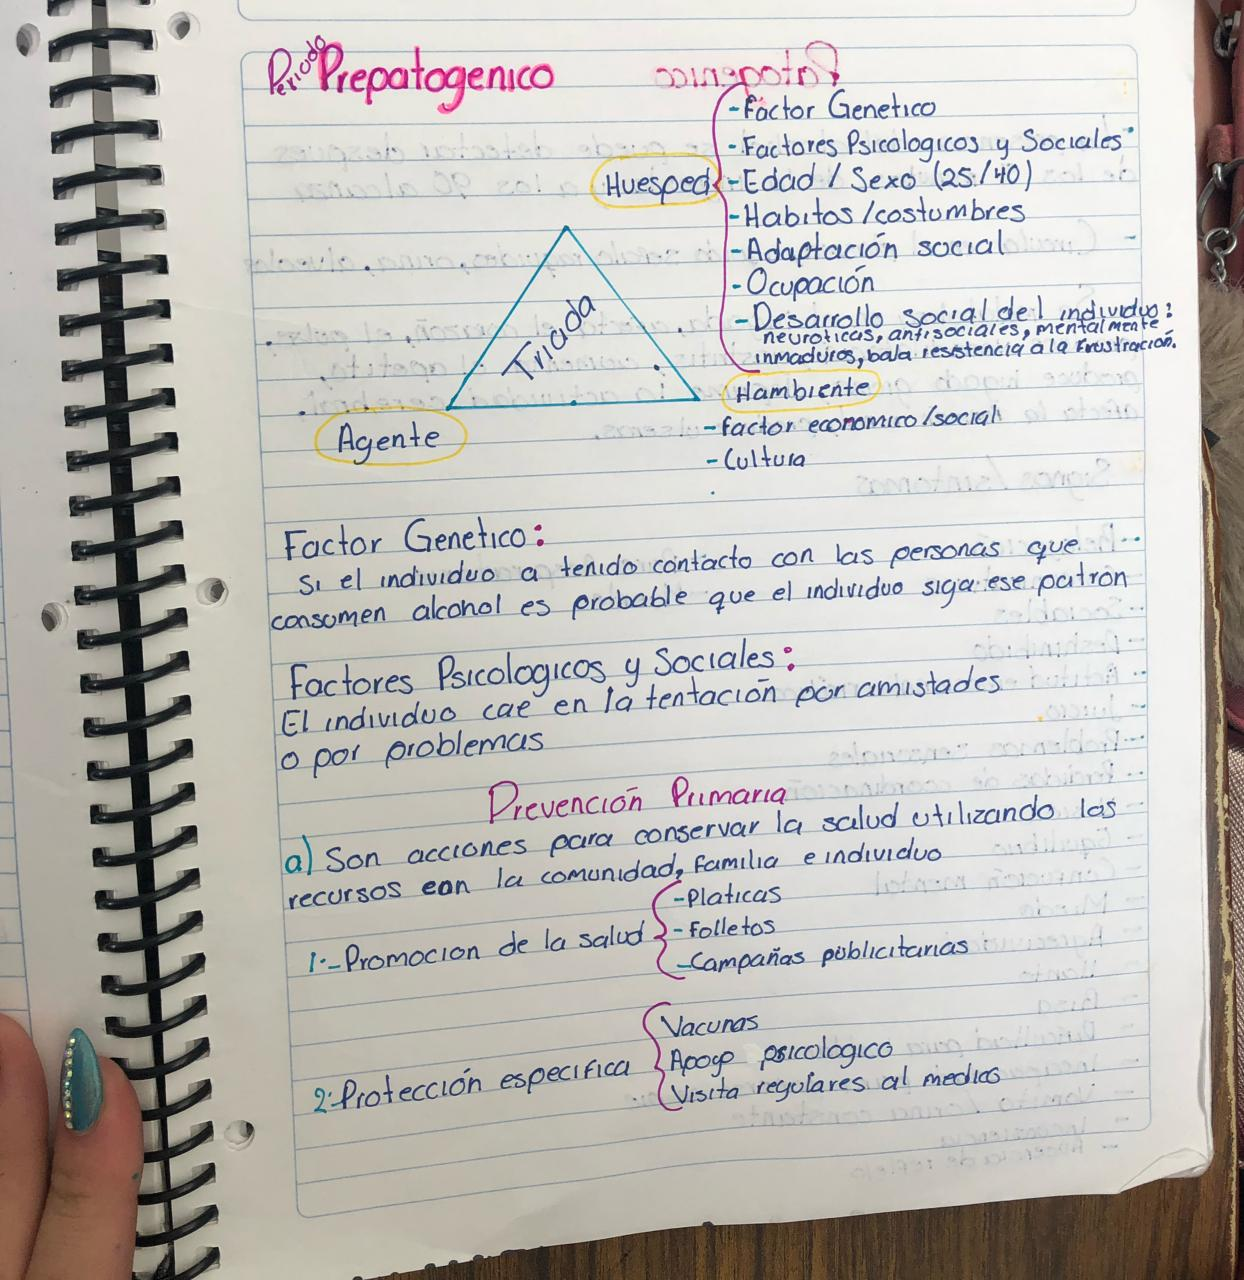 Periodo Prepatogenico
Huesped
-Factor Genetico
-Factores Psicologicos y Sociales
-Edad / Sexo (25/40)
-Habitos/costumbres
-Adaptación social
-Ocupación
-Desarrollo social del individuo:
neuroticas, antisociales, mentalmente
inmaduros, baja resistencia a la frustración.
Triada
Agente
Hambiente
-factor economico/social
-Cultura
Factor Genetico:
Si el individuo a tenido contacto con las personas que
consumen alcohol es probable que el individuo siga ese patron
Factores Psicologicos y Sociales:
El individuo cae en la tentación por amistades
o por problemas
Prevención Primaria
a) Son acciones para conservar la salud utilizando los
recursos con la comunidad, familia e individuo
1.-Promocion de la salud
-Platicas
-Folletos
-Campañas publicitarias
2.-Protección especifica
Vacunas
Apoyo psicologico
Visita regulares al medico